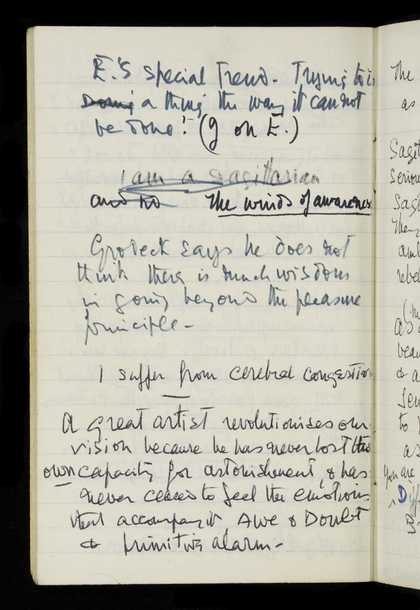 E.'s special Trend. Trying to
Doing a thing the way it cannot
be done! (J on E.)
I am a Sagittarian
and no The winds of awareness
Grodeck says he does not
think there is much wisdom
in going beyond the pleasure
principle -
I suffer from cerebral congestion
A great artist revolutionises our
vision because he has never lost
own capacity for astonishment, & has
never ceased to feel the emotions
that accompany it, Awe & Doubt
& primitive alarm -
The
as
Sagit
Serious
Sag
They
and
rebel
as
beau
& a
Sen
to
as
you are
Diff